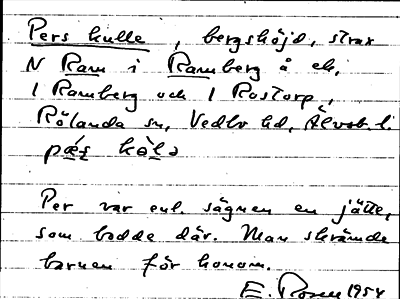 Pers kulle, bergshöjd, strax
N Ram i Ramberg å ek,
1 Ramberg och 1 Rostorp,
Rölanda sn, Vedbo hd, Älvsb. l.
Per var enl. sägnen en jätte,
som bodde där. Man skrämde
barnen för honom.
E. Rosen 1954